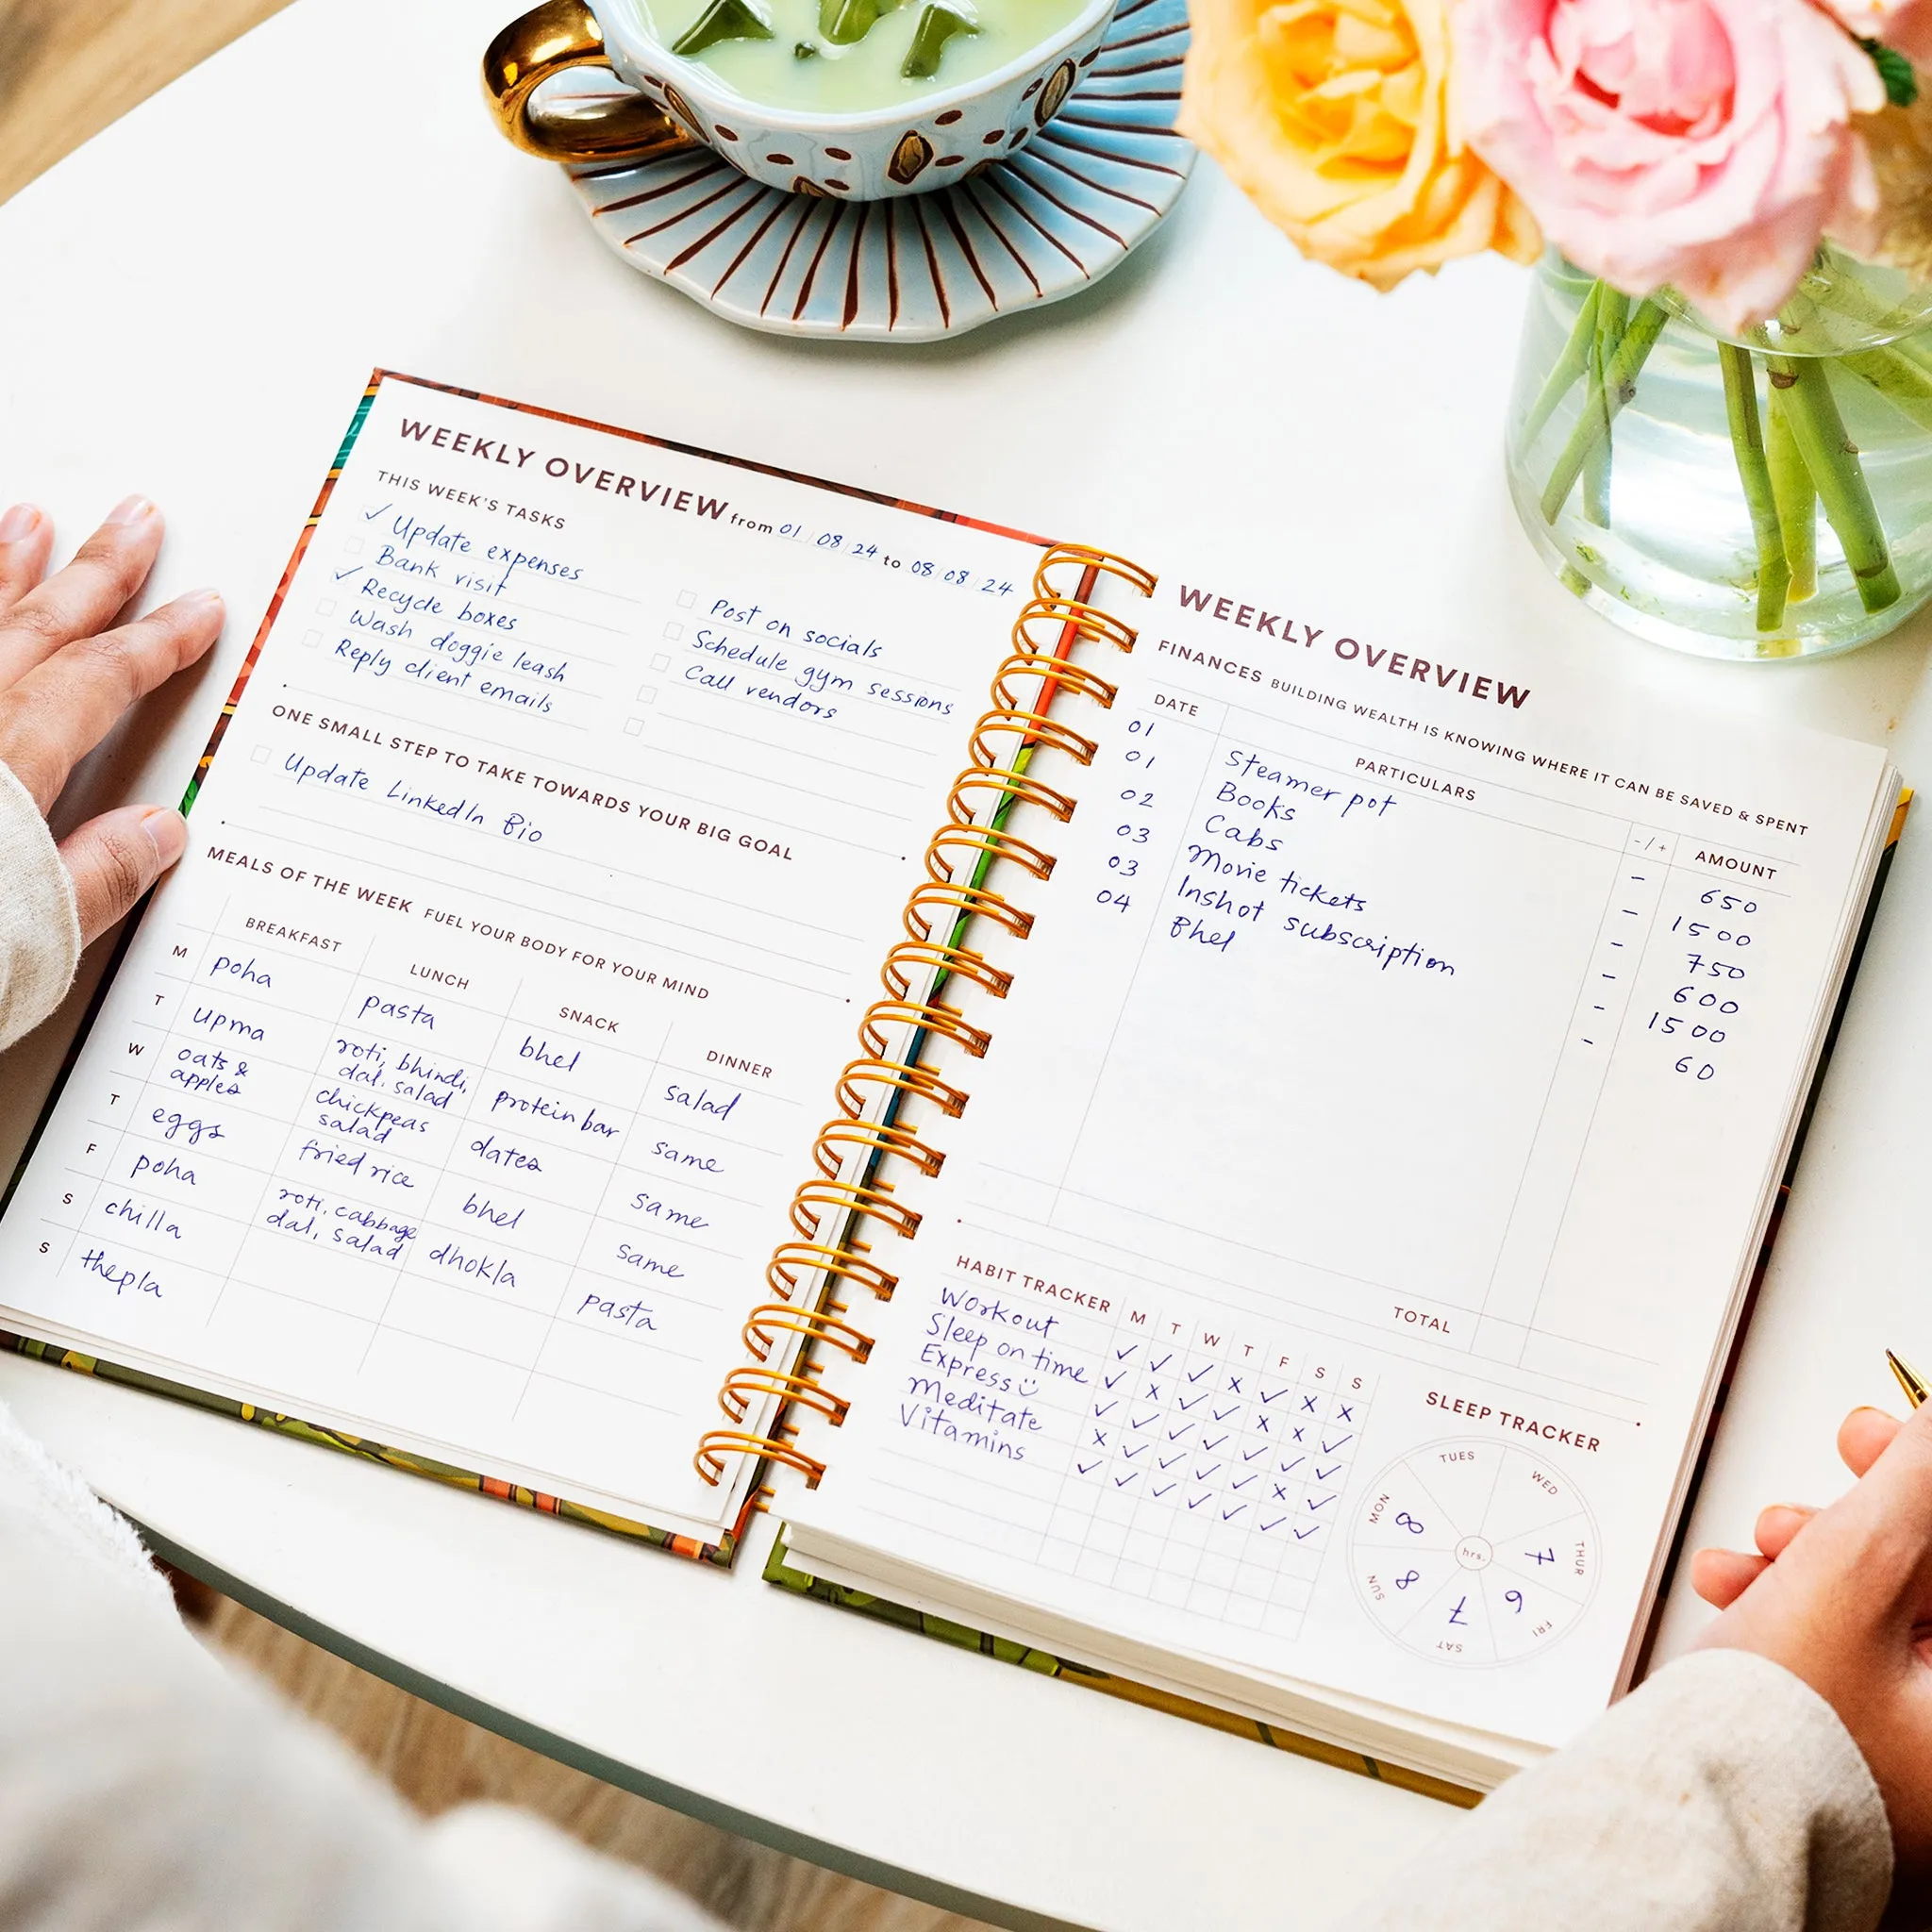 WEEKLY OVERVIEW from 01 / 08 / 24 to 08 / 08 / 24
THIS WEEK'S TASKS
✓ Update expenses
Bank visit
✓ Recycle boxes
Wash doggie leash
Reply client emails
Post on socials
Schedule gym sessions
Call vendors
ONE SMALL STEP TO TAKE TOWARDS YOUR BIG GOAL
Update LinkedIn Bio
MEALS OF THE WEEK FUEL YOUR BODY FOR YOUR MIND
BREAKFAST LUNCH SNACK DINNER
M poha pasta bhel salad
T upma roti, bhindi, dal, salad protein bar same
W oats & apples chickpeas salad dates same
T eggs fried rice bhel same
F poha roti, cabbage dal, salad dhokla pasta
S chilla
S thepla
WEEKLY OVERVIEW
FINANCES BUILDING WEALTH IS KNOWING WHERE IT CAN BE SAVED & SPENT
DATE PARTICULARS -/+ AMOUNT
01 Steamer pot - 650
01 Books - 1500
02 Cabs - 750
03 Movie tickets - 600
03 Inshot subscription - 1500
04 Bhel - 60
TOTAL
HABIT TRACKER M T W T F S S
Workout ✓ ✓ ✓ x ✓ x x
Sleep on time ✓ x ✓ ✓ x x ✓
Express ☺ ✓ ✓ ✓ ✓ ✓ ✓ ✓
Meditate x ✓ ✓ ✓ ✓ x ✓
Vitamins ✓ ✓ ✓ ✓ ✓ ✓ ✓
SLEEP TRACKER
hrs.
MON 8
TUES
WED
THUR 7
FRI 6
SAT 7
SUN 8